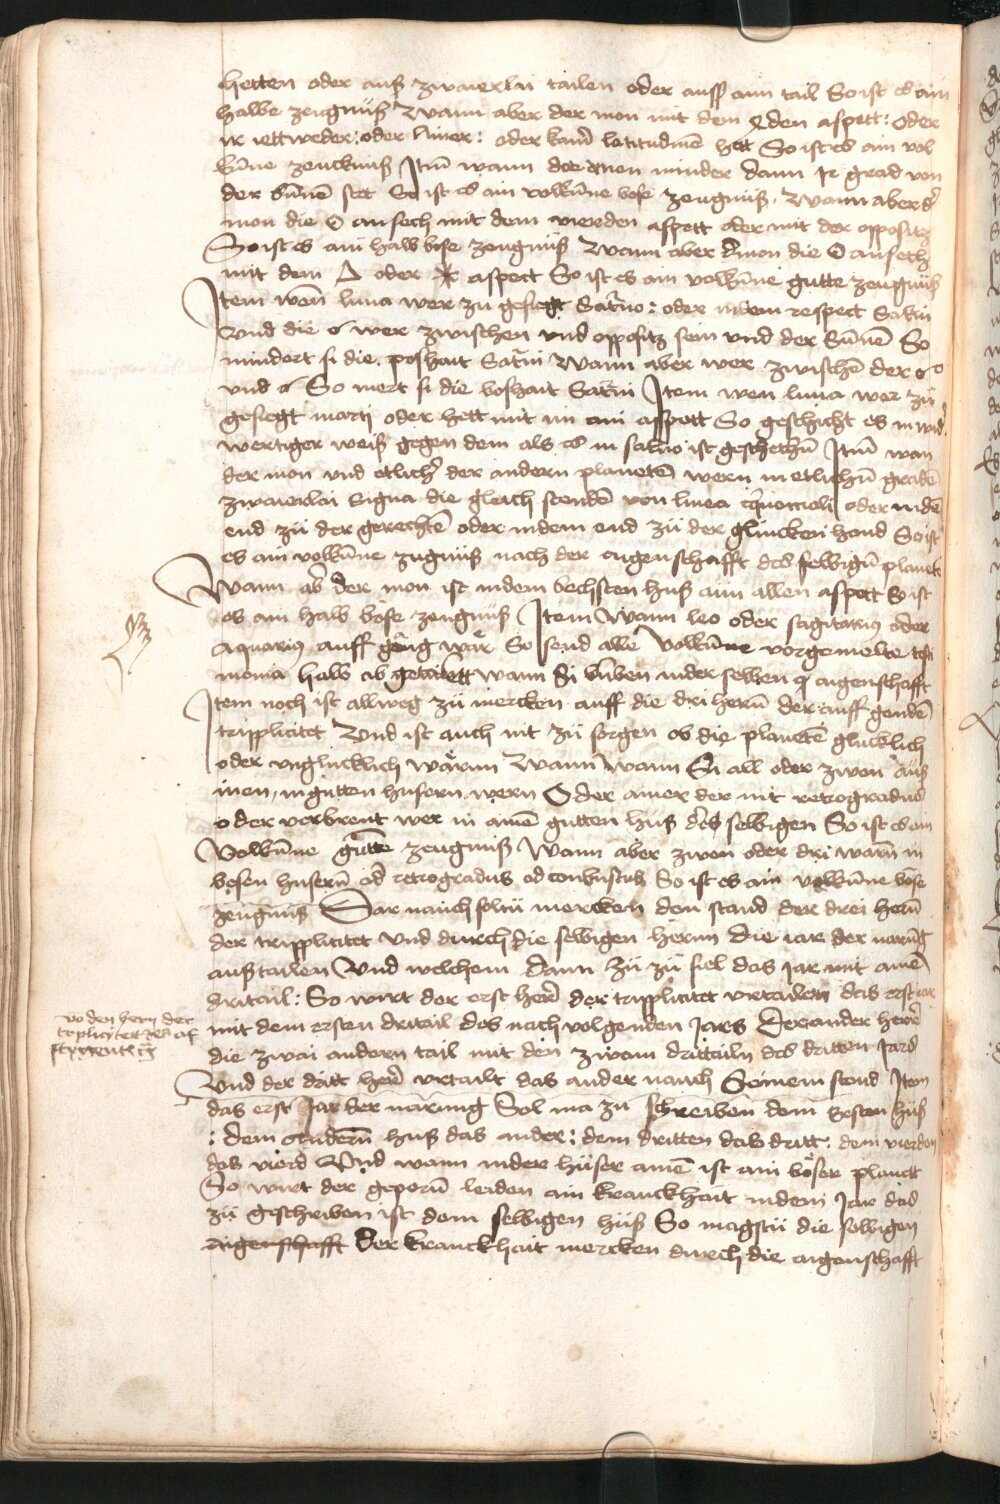 hetten oder auß zwaierlai tailen oder auff ain tail So ist es ain
halbe zeugnuß Wann aber der mon mit dem den aspett: oder
ir iettweder: oder ainer: oder kainē latitudinē hett So ist es ain vol
kūne zeucknuß Itm̄ wann der mon minder dann grad von
der sūnē stet So ist es ain volkūne bose zeugnuß. Wann aber dʼ
mon die ☉ ansech mit dem vierden aspett oder mit der oppositz
So ist es ain halb bose zeugnuß Wann aber dʼ mon die ☉ ansech
mit dem △ oder ⚹ aspect So ist es ain volkūne gutte zeugnuß
Item wen̄ luna wer zu gefiegt Saťno: oder in dem respect Saťni
Vnd die ☌ wer zwischen vnd oppositz sein vnd der Sūnē So
mindert si die poshait Saťni Wann aber wer zwischē der ☍
vnd ☌ So mert si die boshait Saťni Item wen luna wer zů
gefiegt marti oder hett mit im ain aspett So geschicht es in widʼ
wertiger weiß gegen dem als es in saťno ist geschechn̄ Itm̄ wan
der mon vnd etlichʼ der andern planetē wern in etlichn̄ gradē
zwaierlai signa die gleich stendē von linea equoctioli oder in dē
end zů der gerechtē oder in dem end zů der glincken hand So ist
es ain volkūne zugnuß nach der aigenschafft des selbign̄ planetē
Wann abʼ der mon ist in dem sechsten huß ann allen aspett So ist
es ain halb bose zeugnuß Item Wann leo oder sagitarius oder
aquarius auff geng wär So send alle volkūne vorgemelte testi
monia halb ab getailett wann Si in der selben aigenschafft
Item noch ist allweg zů mercken auff die dri hern̄ der auff gendē
tripplicitet Vnd ist auch nit zů sorgen ob die planetē glucklich
oder vnglucklich wärnn Wann Wann Si all oder zwen auß
inen in gutten husern wern Oder ainer der nit retrogradus
oder verbrent wer in ainē gutten huß des selbigen So ist es ain
Volkūne gutte zeugnuß Wann aber zwen oder dri warn̄ in
besen husern̄ od retrogradus od conbustus So ist es ain volkūne bose
zeugnuß Dar nauch soltu mercken den stand der drei hern̄
der tripplicitet Vnd durch die selbigen hernn die iar der narūg
auß tailen Vnd welchem dann zů zů fiel das Jar mit ainē
dritail: So wirt der erst herʼ der tripplicitet vrtailen das erst iar
mit dem ersten dritail des nach volgenden Jars Der ander herʼ
die zwai andern tail mit den zwain drittailn des dritten Jars
Vnd der dritt herʼ vrtailt das ander nauch Seinem stond Item
das erst Jar der narung Sol ma zu schreiben dem ersten huß
: dem andern̄ huß das ander: dem dritten das dritt: dem vierden
das vierd Vnd wann in der hüser ainē ist ain böser planet
So wirt der geporn̄ leiden ain kranckhait in dem Jar das
zů geschriben ist dem selbigen huß So magstu die selbigen
aigenschafft der kranckhait mercken durch die aigenschafft
vo den hern der